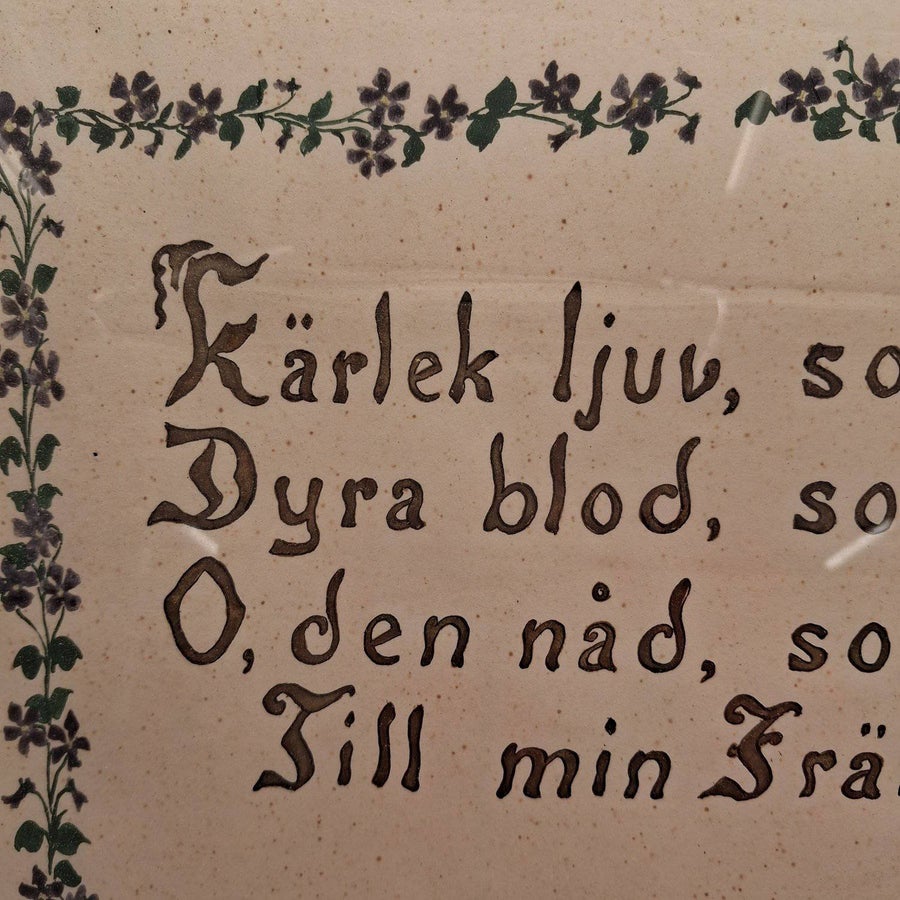 Kärlek ljuv, so
Dyra blod, so
O, den nåd, so
Till min Frä